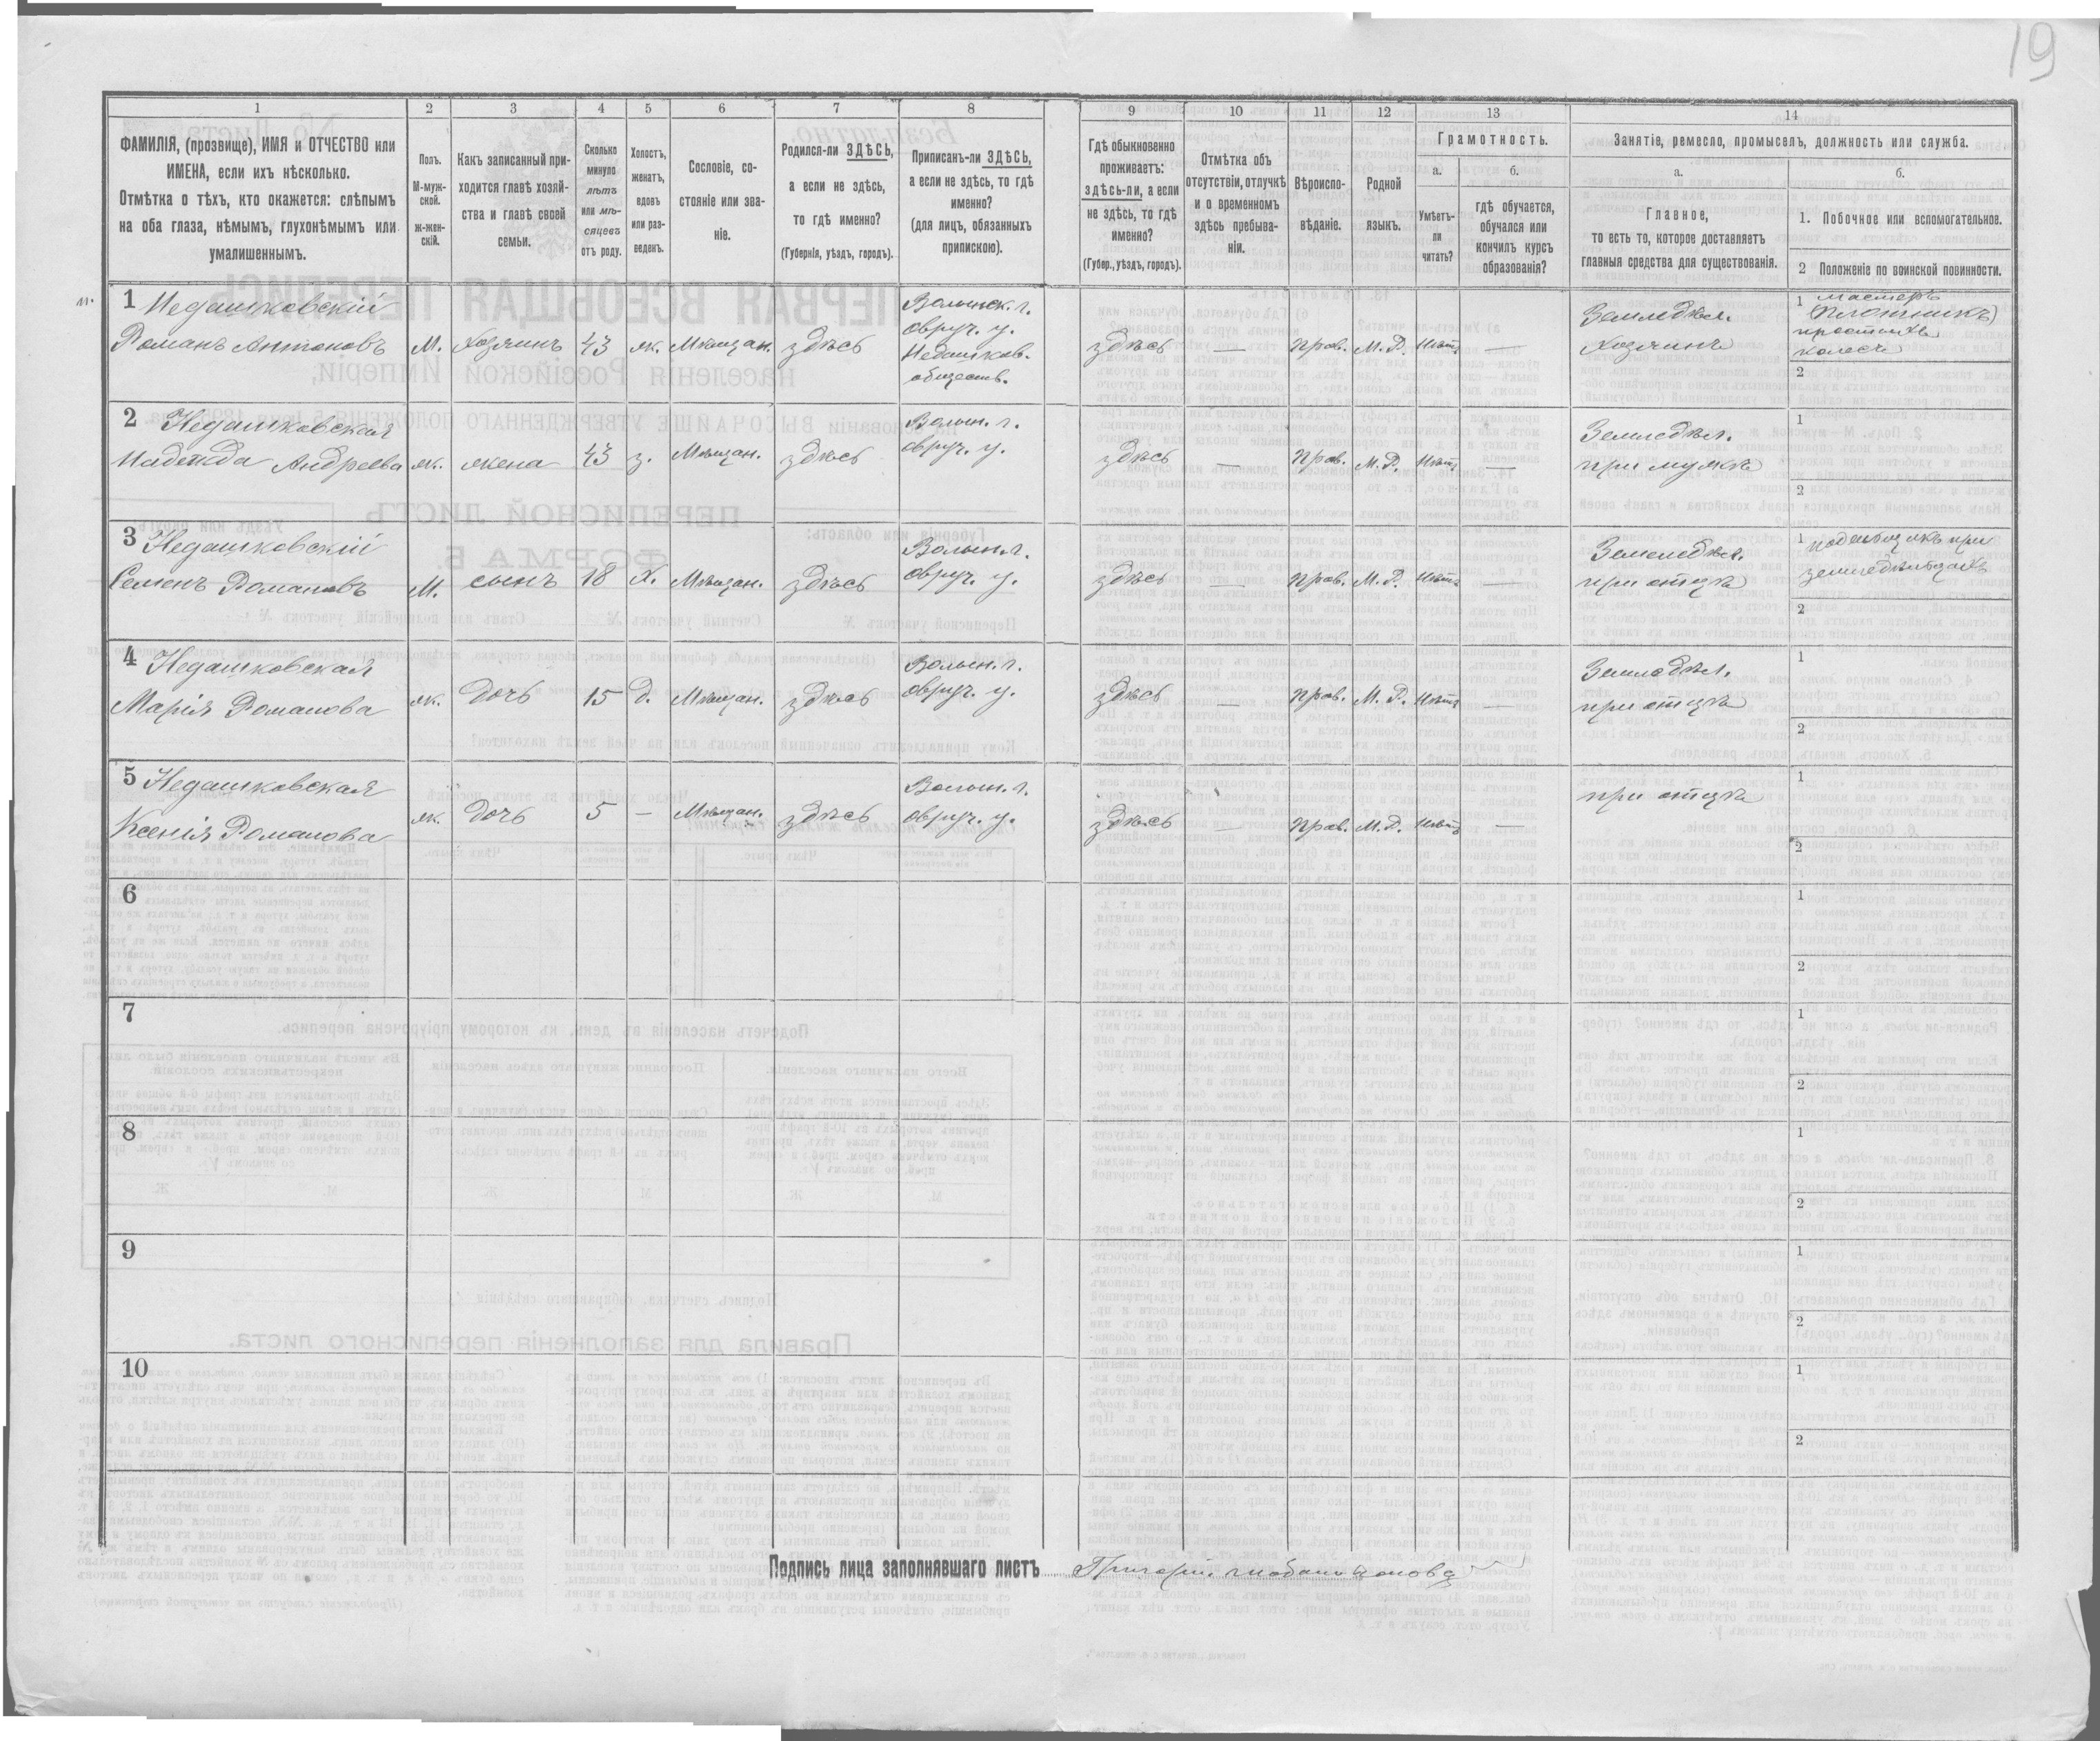 19
1 2 3 4 5 6 7 8 9 10 11 12 13 14
ФАМИЛІЯ, (прозвище), ИМЯ и ОТЧЕСТВО или
ИМЕНА, если ихъ нѣсколько.
Отмѣтка о тѣхъ, кто окажется: слѣпымъ
на оба глаза, нѣмымъ, глухонѣмымъ или
умалишеннымъ.
Полъ.
М-муж-
ской.
ж-жен-
скій.
Какъ записанный при-
ходится главѣ хозяй-
ства и главѣ своей
семьи.
Сколько
минуло
лѣтъ
или мѣ-
сяцевъ
отъ роду.
Холостъ,
женатъ,
вдовъ
или раз-
веденъ.
Сословіе, со-
стояніе или зва-
ніе.
Родился-ли ЗДѢСЬ,
а если не здѣсь,
то гдѣ именно?
(Губернія, уѣздъ, городъ).
Приписанъ-ли ЗДѢСЬ,
а если не здѣсь, то гдѣ
именно?
(для лицъ, обязанныхъ
припискою).
Гдѣ обыкновенно
проживаетъ:
здѣсь-ли, а если
не здѣсь, то гдѣ
именно?
(Губер., уѣздъ, городъ).
Отмѣтка объ
отсутствіи, отлучкѣ
и о временномъ
здѣсь пребыва-
ніи.
Вѣроиспо-
вѣданіе.
Родной
языкъ.
Грамотность.
а.
Умѣетъ-
ли
читать?
б.
гдѣ обучается,
обучался или
кончилъ курсъ
образованія?
Занятіе, ремесло, промыселъ, должность или служба.
а.
Главное,
то есть то, которое доставляетъ
главныя средства для существованія.
б.
1. Побочное или вспомогательное.
2 Положеніе по воинской повинности.
1 Недашковскій
Романъ Антоновъ М. Хозяинъ 43 ж. Мѣщан. здѣсь
Волынск. г.
овруч. у.
Недашков.
обществ.
здѣсь — прав. М.Р. нѣтъ —
Земледѣл.
хозяинъ
1 мастеръ
(плотникъ)
колесъ
2
2 Недашковская
Надежда Андреева ж. жена 43 з. Мѣщан. здѣсь
Волын. г.
овруч. у.
здѣсь — прав. М.Р. нѣтъ —
Земледѣл.
при мужѣ
1
2
3 Недашковскій
Семенъ Романовъ М. сынъ 18 х. Мѣщан. здѣсь
Волын. г.
овруч. у.
здѣсь — прав. М.Р. нѣтъ —
Земледѣл.
при отцѣ
1
2
4 Недашковская
Марія Романова ж. дочь 15 д. Мѣщан. здѣсь
Волын. г.
овруч. у.
здѣсь — прав. М.Р. нѣтъ —
Земледѣл.
при отцѣ
1
2
5 Недашковская
Ксенія Романова ж. дочь 5 — Мѣщан. здѣсь
Волын. г.
овруч. у.
здѣсь — прав. М.Р. нѣтъ —
при отцѣ
1
2
6
1
2
7
1
2
8
1
2
9
1
2
10
1
2
Подпись лица заполнявшаго листъ Григорій